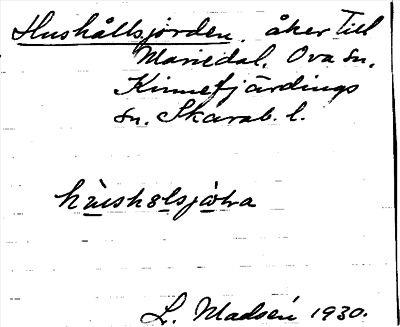 Hushållsjorden, åker till
Mariedal, Ova sn,
Kinnefjärdings
sn. Skarab. l.
L. Madsén 1930.